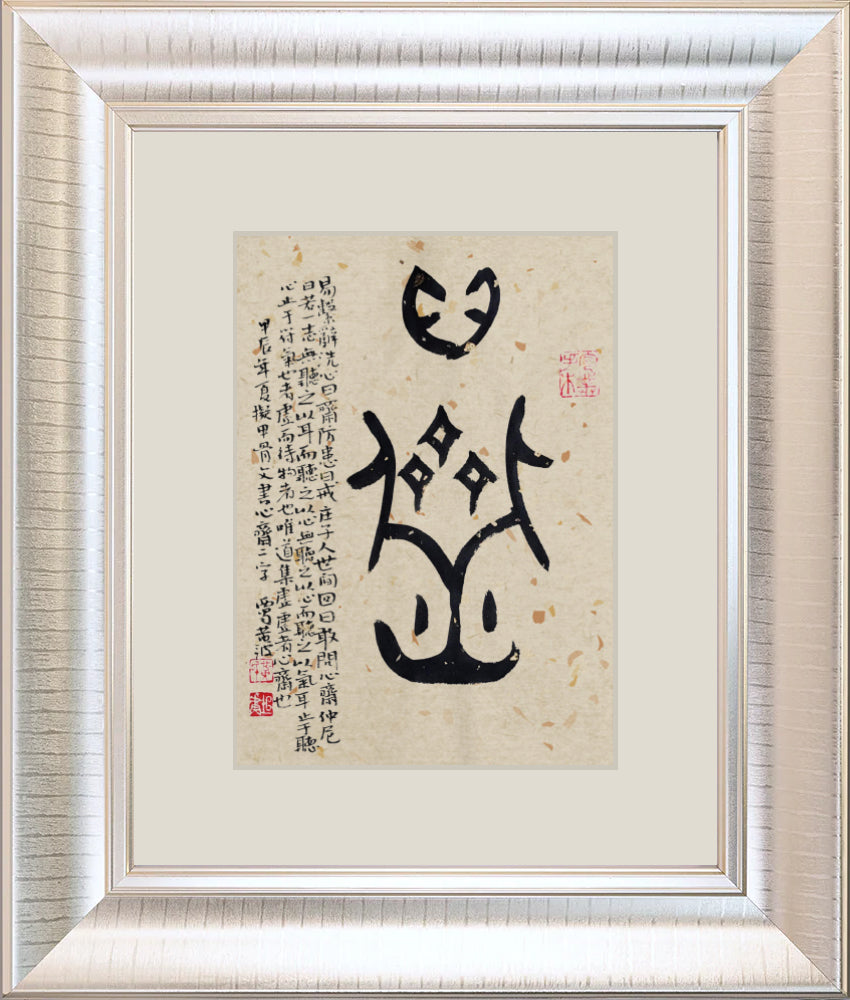 心齋
易繫辭洗心曰齋防患曰戒莊子人世間回曰敢問心齋仲尼
曰若一志無聽之以耳而聽之以心無聽之以心而聽之以氣耳止于聽
心止于符氣也者虛而待物者也唯道集虛虛者心齋也
甲辰年夏擬甲骨文書心齋二字